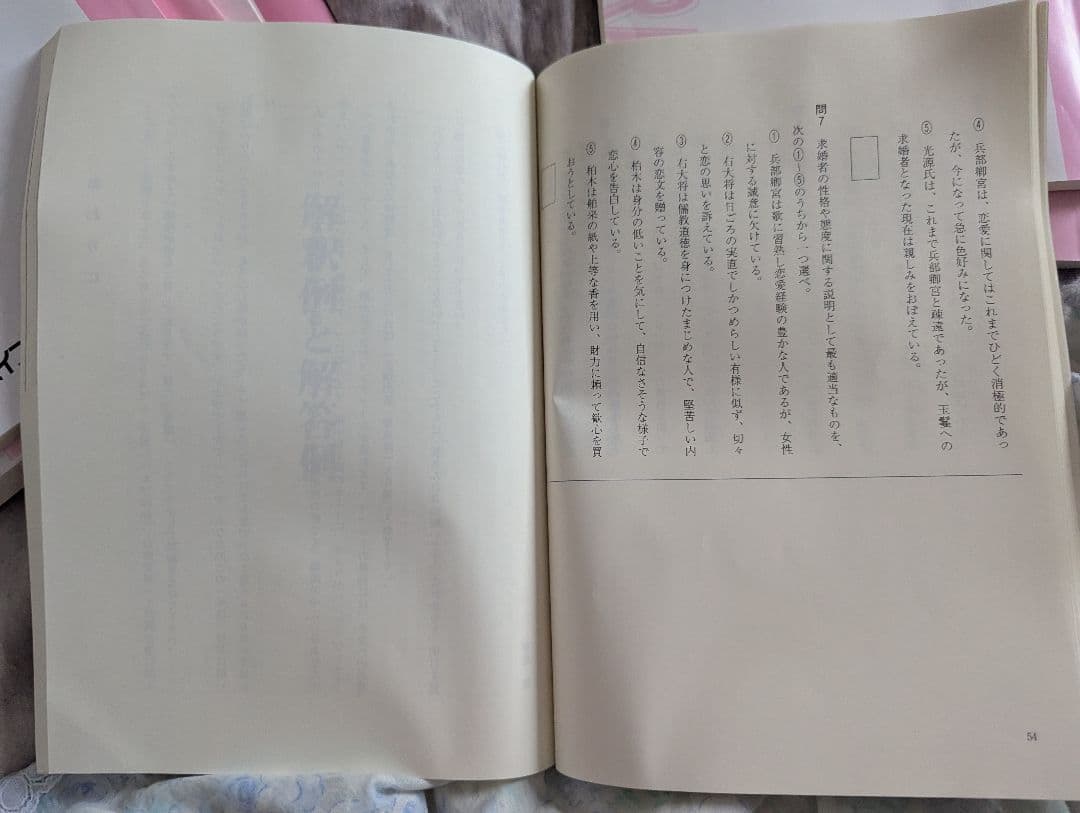 ④ 兵部卿宮は、恋愛に関してはこれまでひどく消極的であっ
たが、今になって急に色好みになった。
⑤ 光源氏は、これまで兵部卿宮と疎遠であったが、玉鬘への
求婚者となった現在は親しみをおぼえている。
問7 求婚者の性格や態度に関する説明として最も適当なものを、
次の①〜⑤のうちから一つ選べ。
① 兵部卿宮は歌に習熟し恋愛経験の豊かな人であるが、女性
に対する誠意に欠けている。
② 右大将は日ごろの実直でしかつめらしい有様に似ず、切々
と恋の思いを訴えている。
③ 右大将は儒教道徳を身につけたまじめな人で、堅苦しい内
容の恋文を贈っている。
④ 柏木は身分の低いことを気にして、自信なさそうな様子で
恋心を告白している。
⑤ 柏木は舶来の紙や上等な香を用い、財力に頼って歓心を買
おうとしている。
54